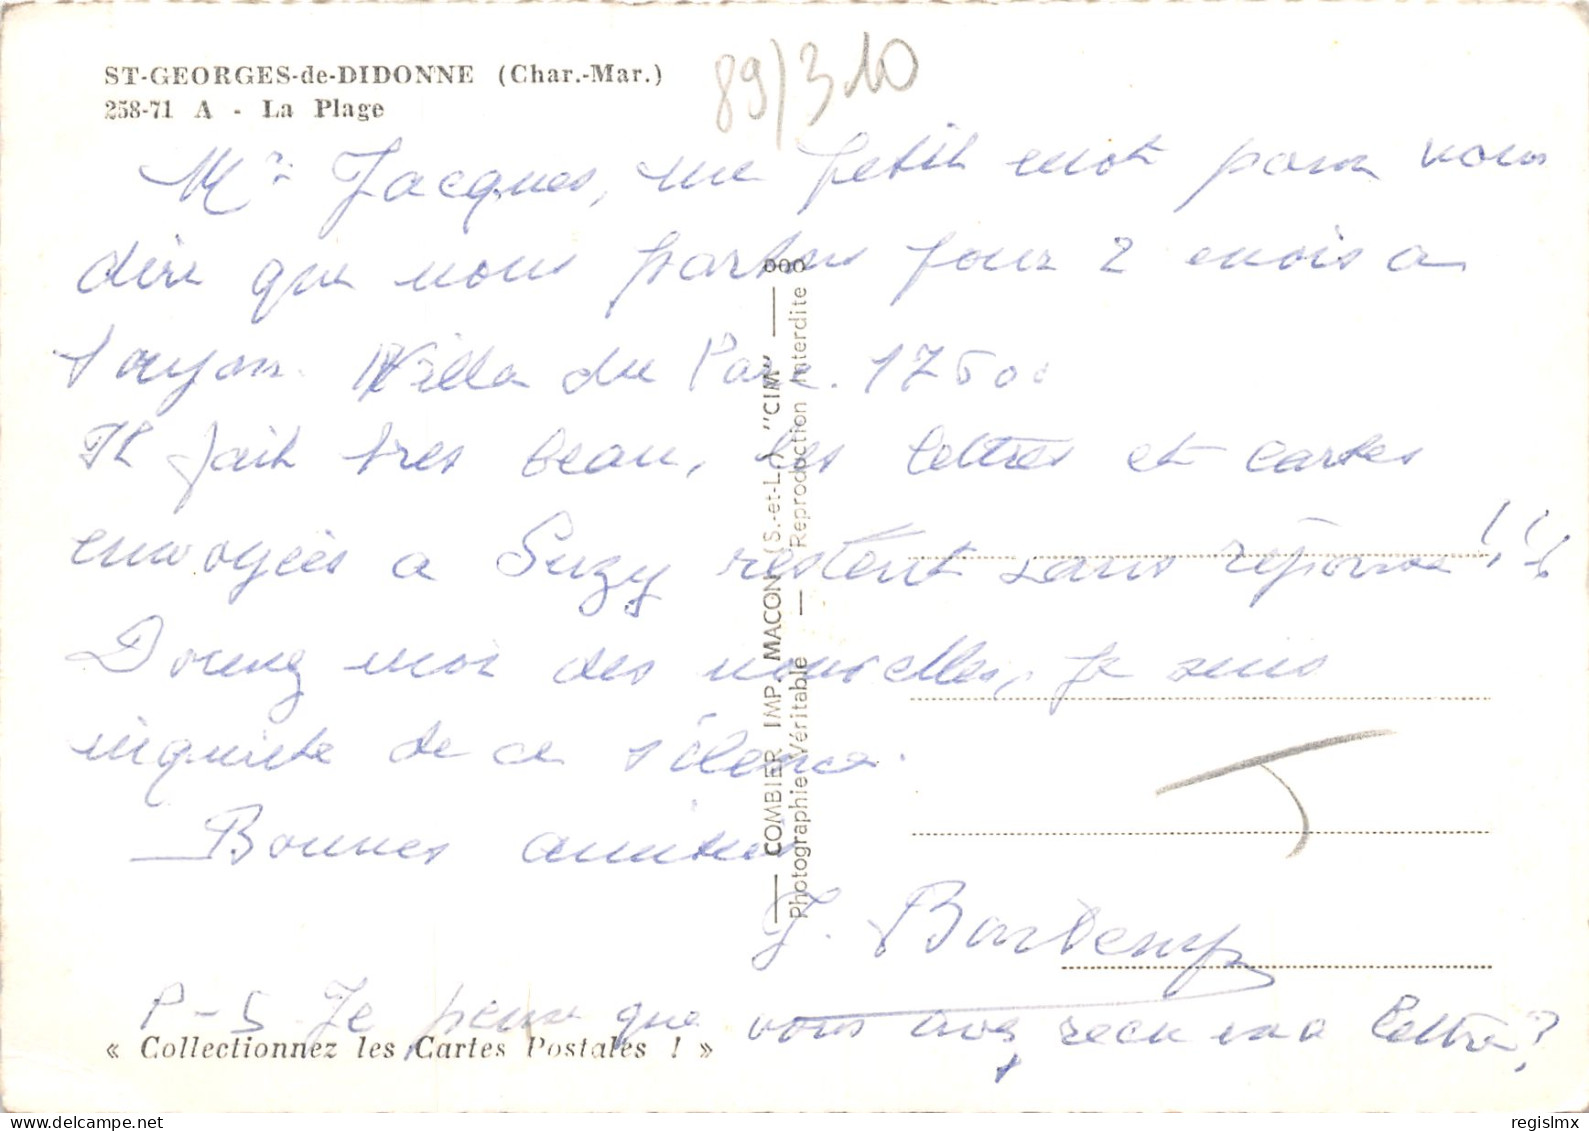 ST-GEORGES-de-DIDONNE (Char.-Mar.)
258-71 A - La Plage
89/310
Mr Jacques, un petit mot pour vous
dire que nous partons pour 2 mois a
Villa du Parc. 17500
Il fait tres beau, les lettres et cartes
envoyées a Suzy restent sans réponse !!!
Donnez moi des nouvelles, je suis
inquiete de ce silence.
Bonnes amities
J. Bartemp
P-S Je pense que vous avez recu ma lettre?
« Collectionnez les Cartes Postales ! »
COMBIER IMP. MACON (S.-et-L.) "CIM"
Photographie Véritable — Reproduction Interdite
regislmx